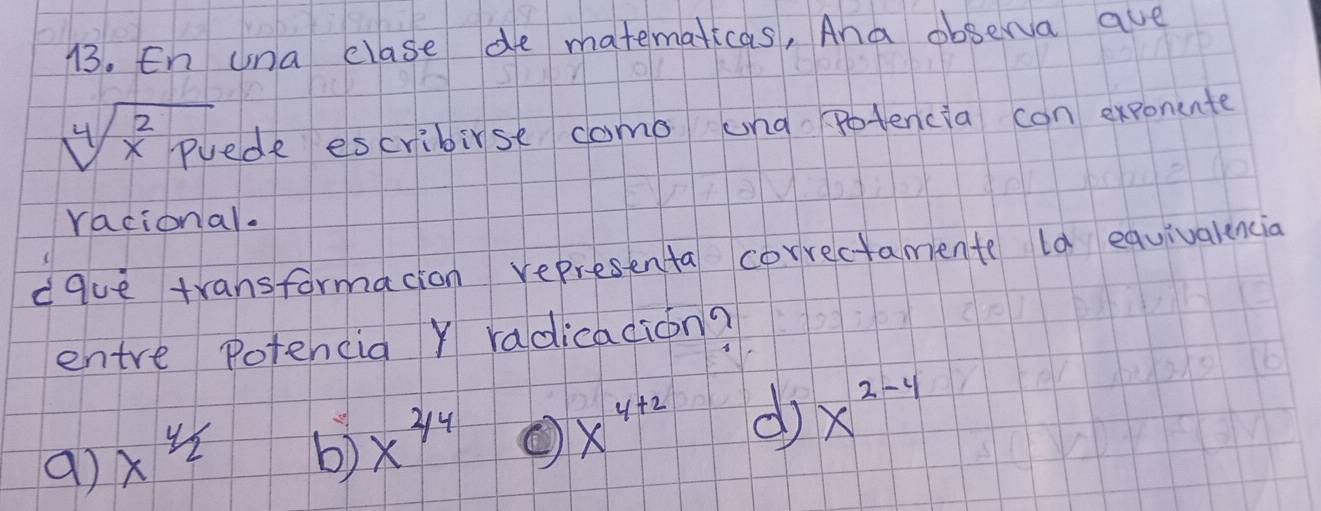 13. En una clase de matematicas, Ana observa que
⁴√x² puede escribirse como una Potencia con exponente
racional.
¿què transformacion representa correctamente la equivalencia
entre Potencia y radicación?
a) x^4/2 b) x^2/4 c) x^4+2 d) x^2-4